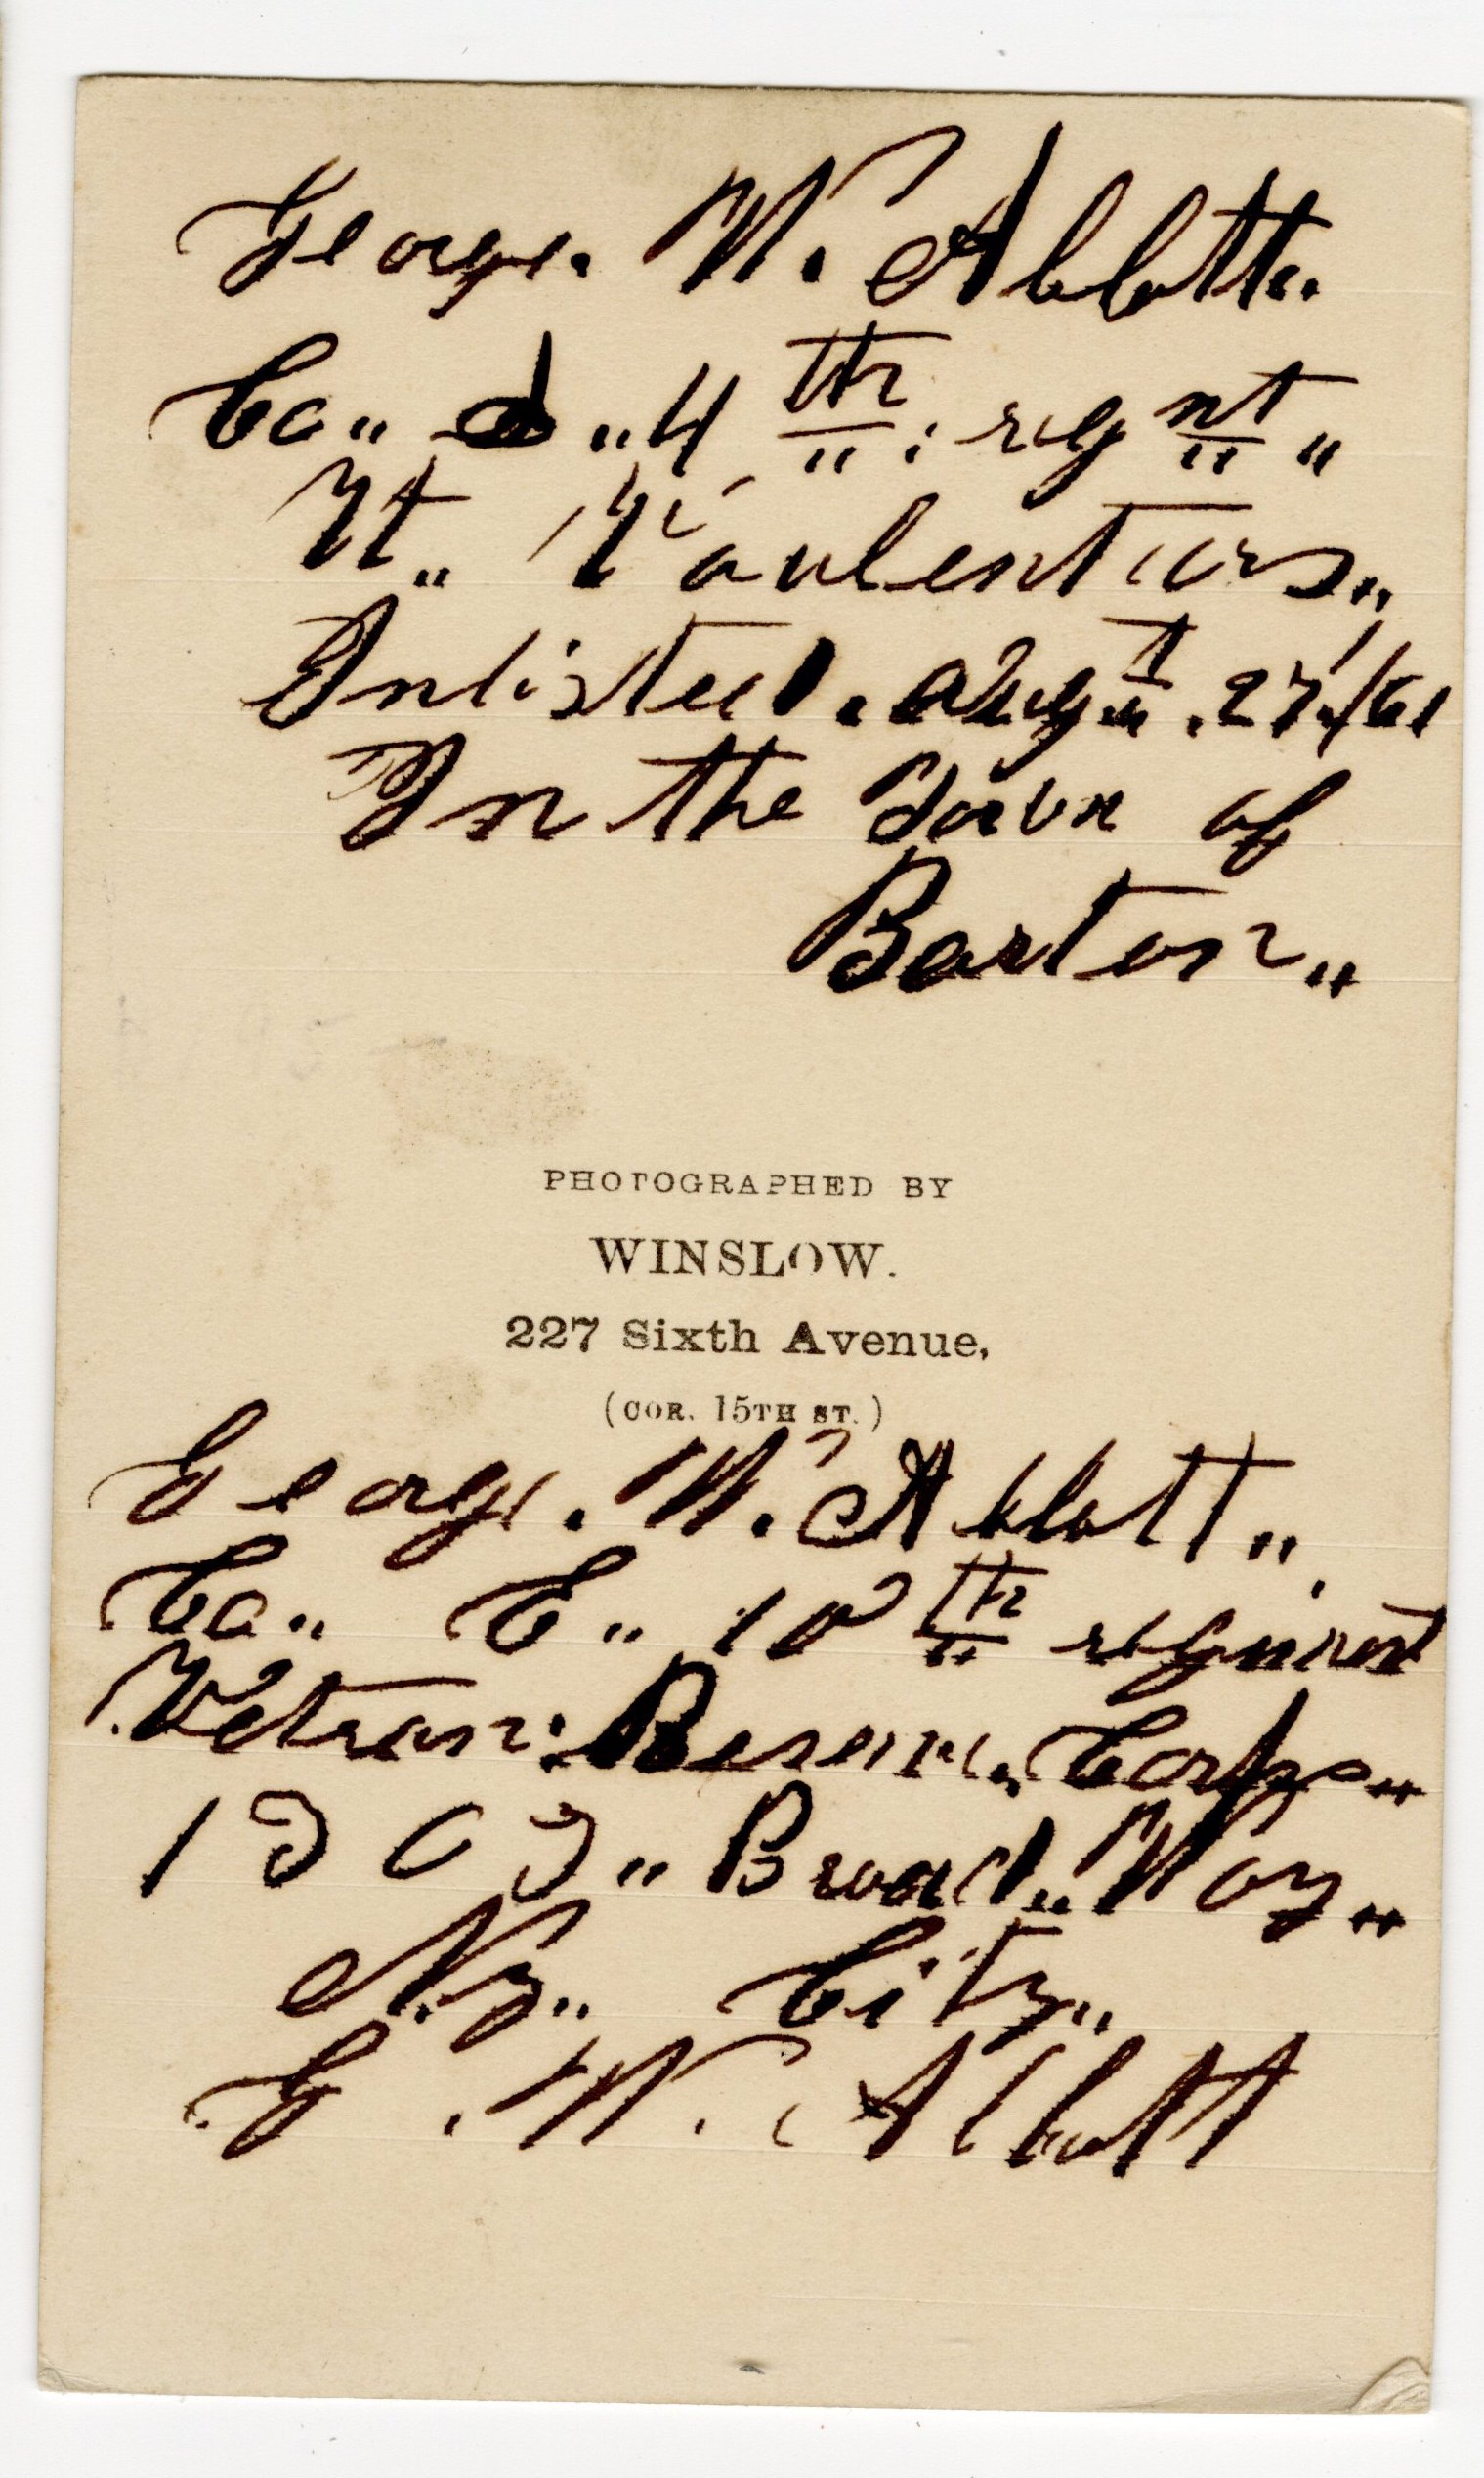 George. W. Abbott.
Co„ d „4 th„ : regnt„
Vt„ Vaulenteers„
Inlisted. Augt„. 27./61
In the Town of
Barton„
PHOTOGRAPHED BY
WINSLOW.
227 Sixth Avenue,
(COR. 15TH ST.)
George. W. Abbott„
Co„ E„ 10 th„ regiment
Vetran: Reserve„ Corps„
1303„ Broad„ Way„
N.y„ City„
G. W. Abbott